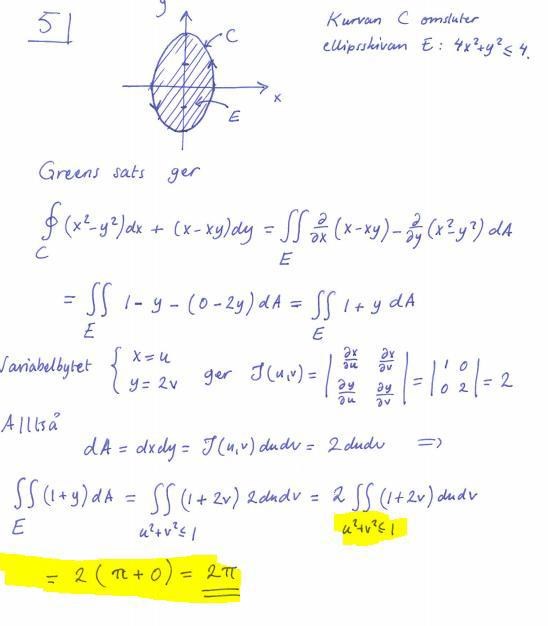 5)
Kurvan C omsluter
ellipsskivan E: 4x²+y² ≤ 4.
y
C
x
E
Greens sats ger
∮_C (x²-y²)dx + (x-xy)dy = ∬_E ∂/∂x (x-xy) - ∂/∂y (x²-y²) dA
= ∬_E 1-y-(0-2y) dA = ∬_E 1+y dA
Variabelbytet { x=u, y=2v ger J(u,v) = | ∂x/∂u ∂x/∂v ; ∂y/∂u ∂y/∂v | = | 1 0 ; 0 2 | = 2
Alltså
dA = dxdy = J(u,v) dudv = 2dudv ⇒
∬_E (1+y)dA = ∬_{u²+v²≤1} (1+2v) 2dudv = 2 ∬_{u²+v²≤1} (1+2v) dudv
= 2(π+0) = 2π